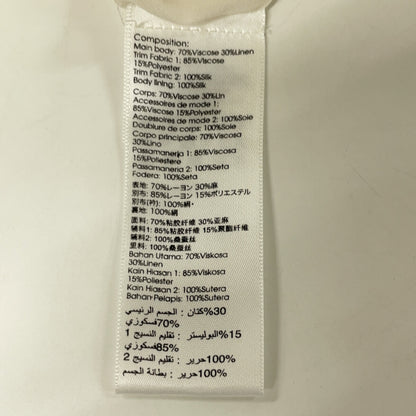 Composition:
Main body: 70%Viscose 30%Linen
Trim Fabric 1: 85%Viscose
15%Polyester
Trim Fabric 2: 100%Silk
Body lining: 100%Silk
Corps: 70%Viscose 30%Lin
Accessoires de mode 1:
85%Viscose 15%Polyester
Accessoires de mode 2: 100%Soie
Doublure de corps: 100%Soie
Corpo principale: 70%Viscosa
30%Lino
Passamanerja 1: 85%Viscosa
15%Poliestere
Passamanerja 2: 100%Seta
Fodera: 100%Seta
表地: 70%レーヨン 30%麻
別布: 85%レーヨン 15%ポリエステル
別布(衿): 100%絹
裏地: 100%絹
面料: 70%粘胶纤维 30%亚麻
辅料1: 85%粘胶纤维 15%聚酯纤维
辅料2: 100%桑蚕丝
里料: 100%桑蚕丝
Bahan Utama: 70%Viskosa
30%Linen
Kain Hiasan 1: 85%Viskosa
15%Polyester
Kain Hiasan 2: 100%Sutera
Bahan Pelapis: 100%Sutera
30%كتان : الجسم الرئيسي
70%فسكوزي
15%البوليستر : تقليم النسيج 1
85%فسكوزي
100%حرير : تقليم النسيج 2
100%حرير : بطانة الجسم